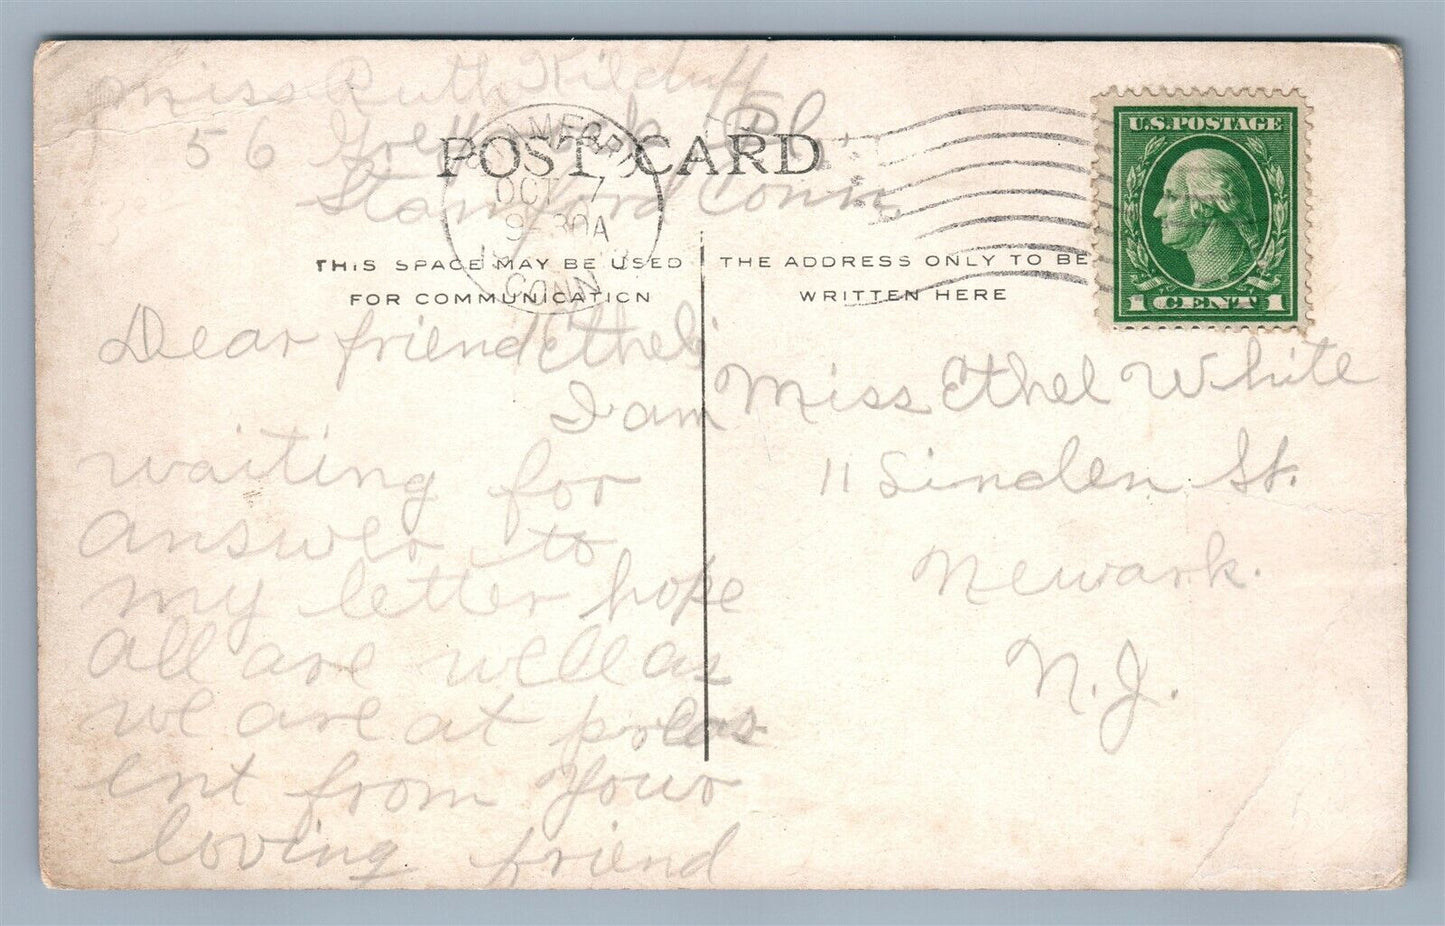 Miss Ruth Kilduff
56
Stamford Conn
POST CARD
OCT 7
9-30A
CONN
U.S. POSTAGE
1 CENT 1
THIS SPACE MAY BE USED
FOR COMMUNICATION
THE ADDRESS ONLY TO BE
WRITTEN HERE
Dear friend Ethel;
I am
waiting for
answer to
my letter hope
all are well as
we are at
ent from Your
loving friend
Miss Ethel White
11 Linden St.
Newark.
N.J.